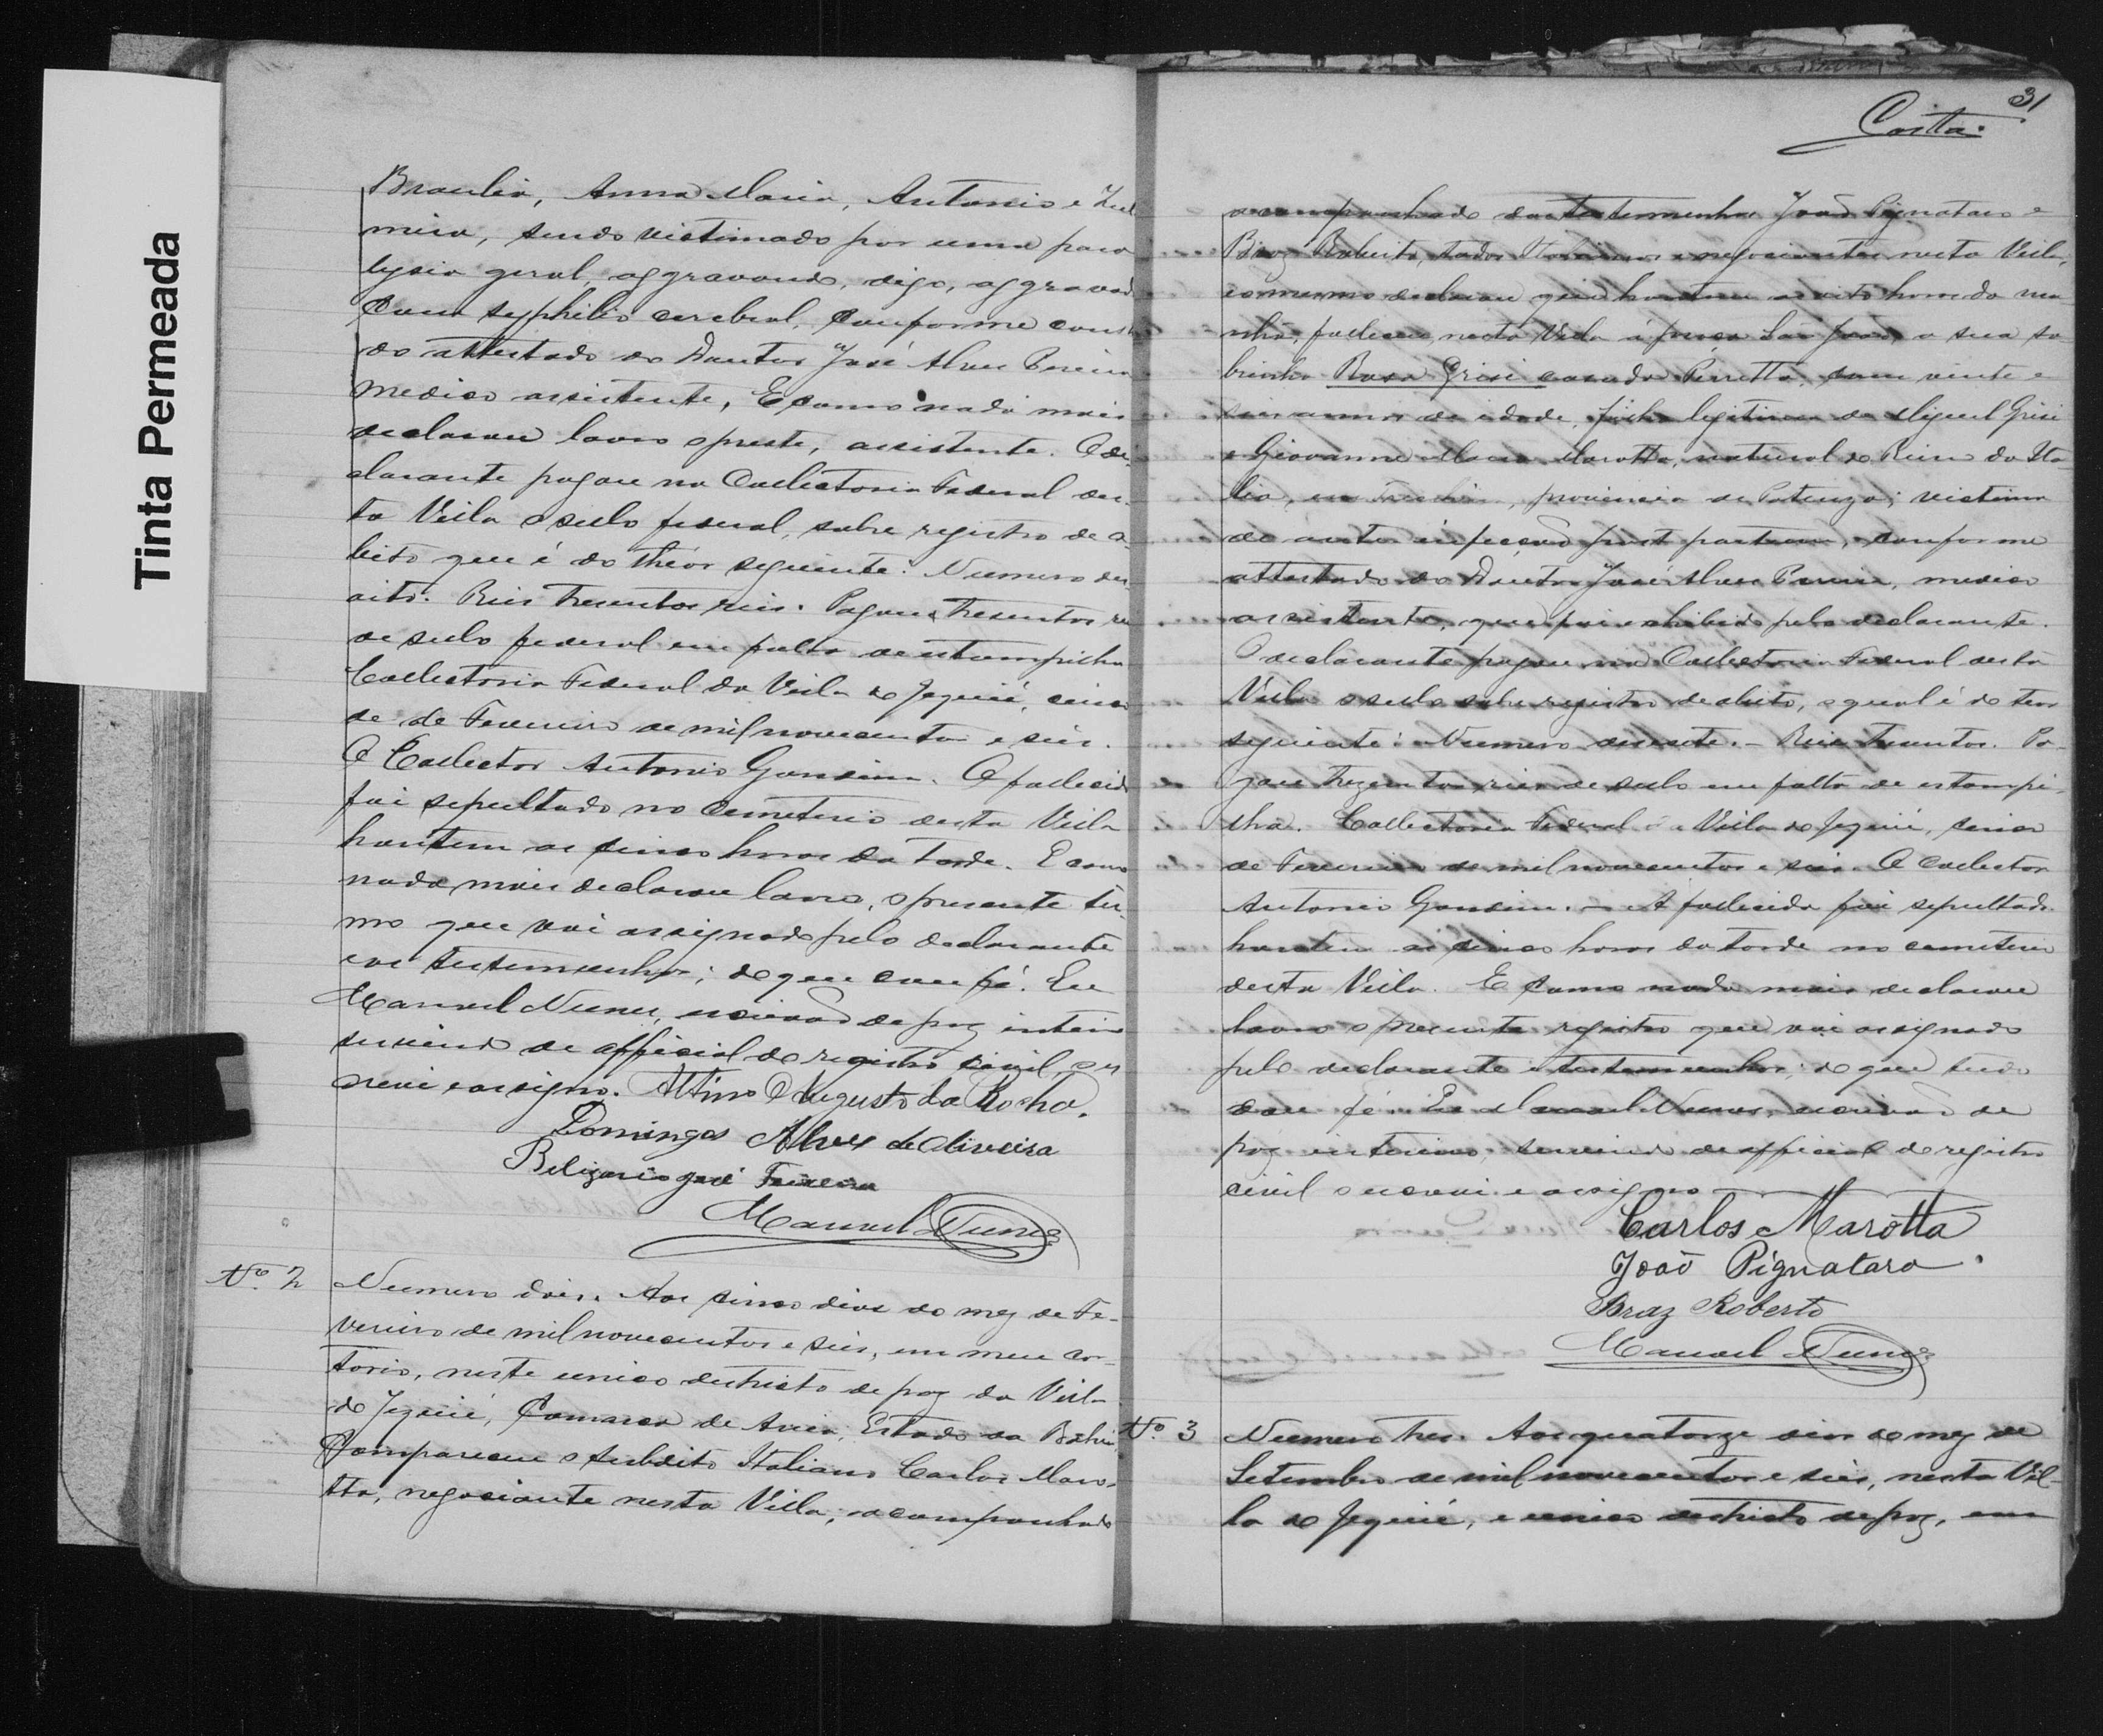 Tinta Permeada
Braulia, Anna Maria, Antonio e Zul
mira, sendo victimado por uma para
lysia geral, aggravando, digo, aggravad
com syphilis cerebral, conforme consta
do attestado do Doutor José Alves Pereira
medico assistente, E como nada mais
declarou lavro o preste, assistente. O de-
clarante pagou na Collectoria Federal des-
ta Villa o sello federal, sobre registro de o-
bito que é do theor seguinte: Numero des-
oito. Reis Tresentos reis. Pagou Tresentos re
de sello federal em falta de estampilha
Collectoria Federal da Villa de Jequié, cinco
de Fevereiro de mil novecentos e seis.
O Collector Antonio Gondim. O fallecido
foi sepultado no cemeterio desta Villa
hontem as cinco horas da tarde. E como
nada mais declarou lavro, o presente ter-
mo que vai assignado pelo declarante
e as testemunhas; do que dou fé. Eu
Manuel Nunes, escrivão de paz interino
servindo de official do registro civil, o es
crevi e assigno. Altino Augusto da Rocha.
Domingos Alves de Oliveira
Belizario José Ferreira
Manuel Nunes
Nº 2 Numero dois. Aos cinco dias do mez de Fe-
vereiro de mil novecentos e seis, em meu car-
torio, neste unico destricto de paz da Villa
de Jequié, Comarca de Areia, Estado da Bahia
Compareceu o subdito Italiano Carlos Maro-
tta, negociante nesta Villa, acompanhado
31
Costa.
acompanhado das testemunhas João Pignataro e
Braz Roberto, todos Italianos e negociantes nesta Villa,
e o mesmo declarou que hontem as oito horas da ma
nhã, falleceu nesta Villa á praça São João a sua so
brinha Rosa Grisi casada Perrotta, com vinte e
seis annos de idade, filha legitima de Miguel Grisi
e Giovanna Maria Marotta, natural do Reino da Ita
lia, em provincia de Potenza; victima
de infecção post partum, conforme
attestado do Doutor José Alves Pereira, medico
assistente, que foi exhibido pelo declarante.
O declarante pagou na Collectoria Federal desta
Villa o sello sobre registro de obito, o qual é do teor
seguinte: Numero desesete. - Reis Tresentos. Pa-
gou trezentos reis de sello em falta de estampi-
lha. Collectoria Federal da Villa de Jequié, cinco
de Fevereiro de mil novecentos e seis. O Collector
Antonio Gondim. - A fallecida foi sepultada
hontem as cinco horas da tarde no cemeterio
desta Villa. E como nada mais declarou
lavro o presente registro que vai assignado
pelo declarante e testemunhas; do que tudo
dou fé. Eu Manuel Nunes, escrivão de
paz interino, servindo de official do registro
civil o escrevi e assigno
Carlos Marotta
João Pignataro
Braz Roberto
Manuel Nunes
Nº 3 Numero tres. Aos quatorze dias do mez de
Setembro de mil novecentos e seis, nesta Vil-
la de Jequié, e unico destricto de paz, em